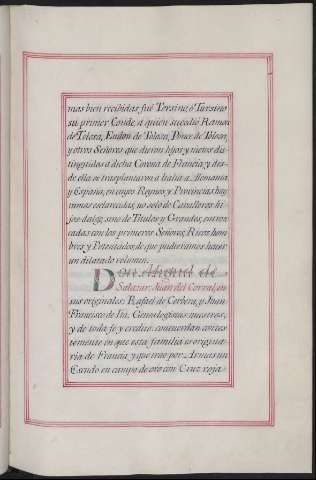 mas bien recibidas, fué Torsino, ó Tursino
su primer Conde, a quien sucedió Ramon
de Tolosa, Eudon de Tolosa, Ponce de Tolosa,
y otros Señores, que dieron hijos y nietos dis-
tinguidos a dicha Corona de Francia, y des-
de ella se trasplantaron á Italia, Alemania
y España, en cuyos Reynos y Provincias hay
ramas esclarecidas, no solo de Cavalleros hi-
jos-dalgo, sino de Titulos y Grandes, entron-
cadas con los primeros Señores, Ricos hom-
bres y Potentados, de que pudieramos hacer
un dilatado volumen.
Don Miguel de
Salazar, Juan del Corral, en
sus originales: Rafael de Cervera, y Juan
Francisco de Genealogistas nuestros,
y de toda fe, y credito, concuerdan contes-
temente en que esta familia es origina-
ria de Francia, y que trae por Armas un
Escudo en campo de oro con Cruz roja